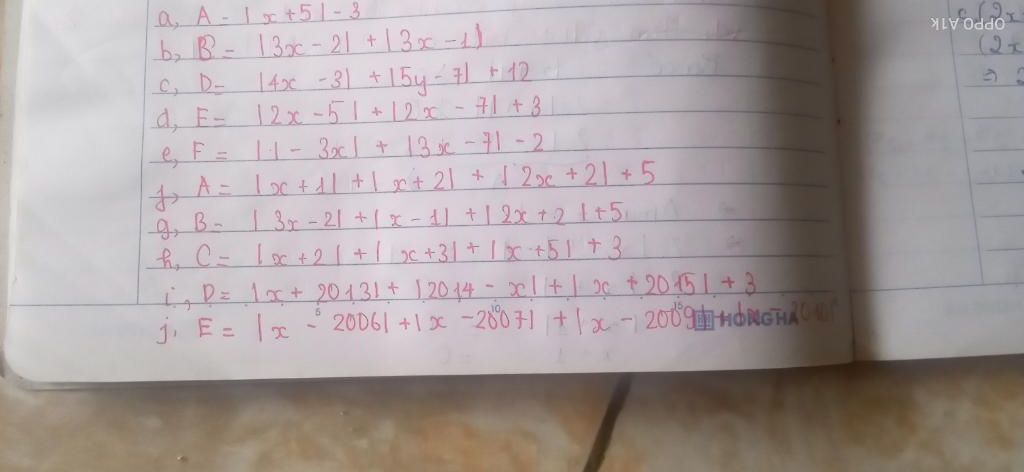 a, A = |x + 5| - 3
b, B = |3x - 2| + |3x - 1|
c, D = |4x - 3| + |5y - 7| + 12
d, E = |2x - 5| + |2x - 7| + 3
e, F = |1 - 3x| + |3x - 7| - 2
f, A = |x + 1| + |x + 2| + |2x + 2| + 5
g, B = |3x - 2| + |x - 1| + |2x + 2| + 5
h, C = |x + 2| + |x + 3| + |x + 5| + 3
i, D = |x + 2013| + |2014 - x| + |x + 2015| + 3
j, E = |x - 2006| + |x - 2007| + |x - 2009
5 10 15
HONG HA
c, (2x
(2x
⇒
OPPO A1K